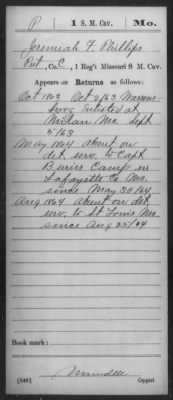 P 1 S. M. Cav. Mo.
Jeremiah F. Phillips
Pvt., Co. C, 1 Reg't Missouri S M Cav.
Appears on Returns as follows:
Oct 1863 Oct 2/63 Warrens-
burg Enlisted at
Milan Mo. Sept
5/63
May 1864 absent on
det. serv. to Capt
Burris Camp in
Lafayette Co. Mo.
since May 20/64
Aug 1864 absent on det
serv. to St Louis Mo.
since Aug 25/64
Book mark:
(546)
Copyist.